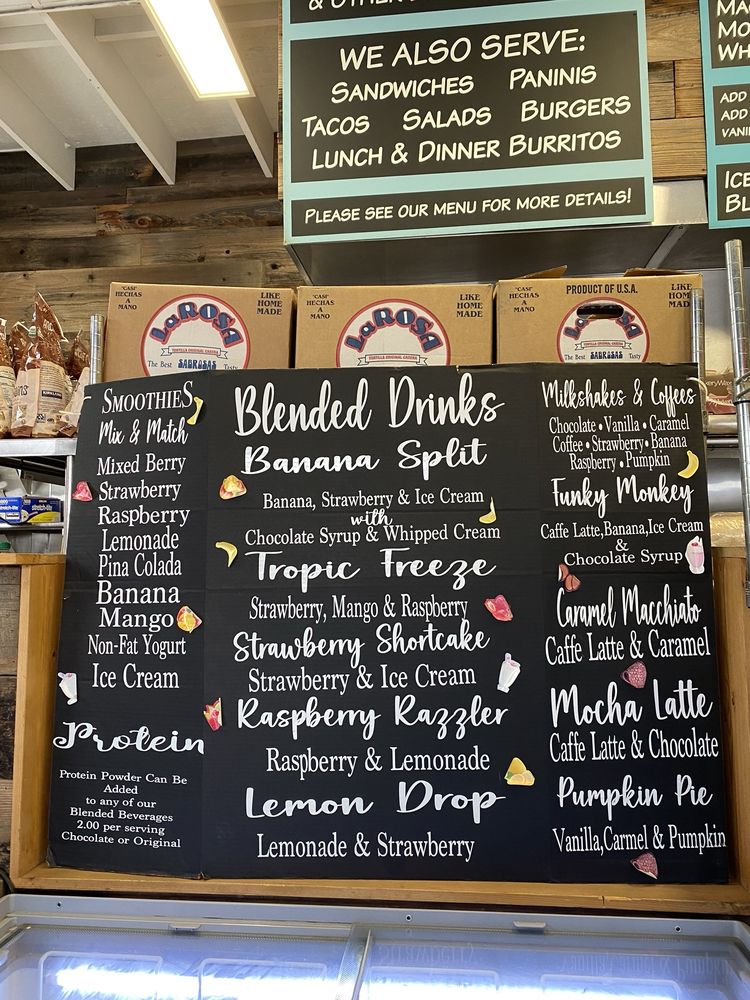 WE ALSO SERVE:
SANDWICHES PANINIS
TACOS SALADS BURGERS
LUNCH & DINNER BURRITOS
PLEASE SEE OUR MENU FOR MORE DETAILS!
ADD
ADD
ICE
"CASI"
HECHAS
A
MANO
LaROSA
TORTILLA ORIGINAL CASERA
The Best SABROSAS Tasty
LIKE
HOME
MADE
"CASI"
HECHAS
A
MANO
LaROSA
TORTILLA ORIGINAL CASERA
LIKE
HOME
MADE
PRODUCT OF U.S.A.
"CASI"
HECHAS
A
MANO
LaROSA
The Best SABROSAS Tasty
LIKE
MADE
KIRKLAND
SMOOTHIES
Mix & Match
Mixed Berry
Strawberry
Raspberry
Lemonade
Pina Colada
Banana
Mango
Non-Fat Yogurt
Ice Cream
Protein
Protein Powder Can Be
Added
to any of our
Blended Beverages
2.00 per serving
Chocolate or Original
Blended Drinks
Banana Split
Banana, Strawberry & Ice Cream
with
Chocolate Syrup & Whipped Cream
Tropic Freeze
Strawberry, Mango & Raspberry
Strawberry Shortcake
Strawberry & Ice Cream
Raspberry Razzler
Raspberry & Lemonade
Lemon Drop
Lemonade & Strawberry
Milkshakes & Coffees
Chocolate • Vanilla • Caramel
Coffee • Strawberry • Banana
Raspberry • Pumpkin
Funky Monkey
Caffe Latte,Banana,Ice Cream
&
Chocolate Syrup
Caramel Macchiato
Caffe Latte & Caramel
Mocha Latte
Caffe Latte & Chocolate
Pumpkin Pie
Vanilla,Carmel & Pumpkin